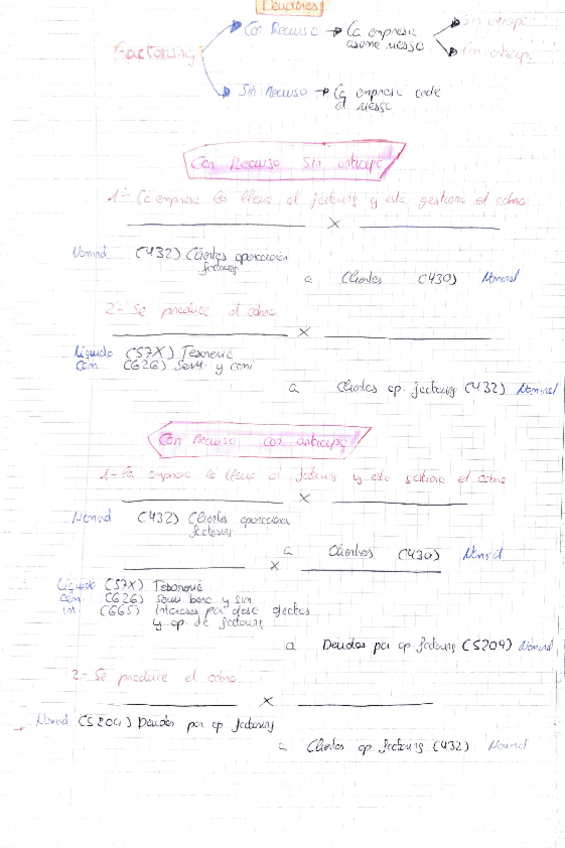 Deudores
Factoring
Con Recurso → La empresa asume riesgo
Sin anticipo
Con anticipo
Sin Recurso → La empresa cede el riesgo
Con Recurso Sin anticipo
1- La empresa lo lleva al factoring y esta gestiona el cobro
X
Nominal (432) Clientes operaciones
factoring
a Clientes (430) Nominal
2- Se produce el cobro
X
Líquido (57X) Tesorería
Com (626) Serv. y comi
a Clientes op. factoring (432) Nominal
Con Recurso con anticipo
1- La empresa lo lleva al factoring y esta gestiona el cobro
X
Nominal (432) Clientes operaciones
factoring
a Clientes (430) Nominal
X
Líquido (57X) Tesorería
Com. (626) Serv banc y sim
int. (665) Intereses por desc efectos
y op. de factoring
a Deudas por op factoring (5209) Nominal
2- Se produce el cobro
X
Nominal (5209) Deudas por op factoring
a Clientes op. factoring (432) Nominal